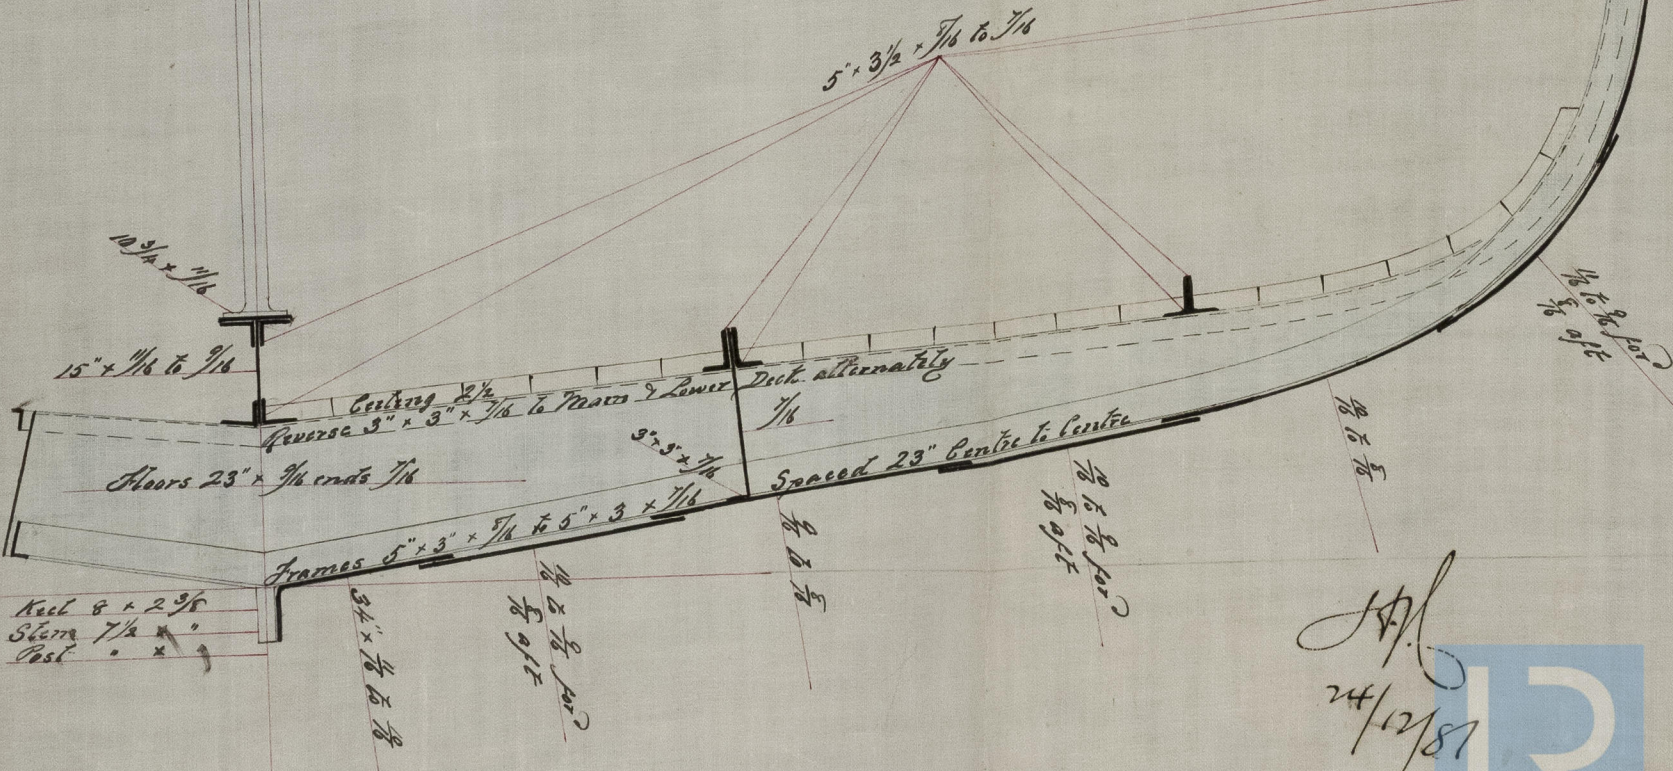 5" × 3 1/2 × 8/16 to 7/16
10 3/4 × 11/16
15" × 11/16 to 9/16
Ceiling 2 1/2
Reverse 3" × 3" × 7/16 to Main & Lower Deck alternately
7/16
3" × 3" × 7/16
Floors 23" × 9/16 ends 7/16
Spaced 23" Centre to Centre
Frames 5" × 3" × 8/16 to 5" × 3 × 7/16
Keel 8 × 2 3/8
Stem 7 1/2 × "
Post " × "
34" × 11/16 to 10/16
10/16 to 9/16 for
8/16 aft
9/16 to 8/16
10/16 to 9/16 for
8/16 aft
10/16 to 8/16
11/16 to 9/16 for
8/16 aft
24/12/87